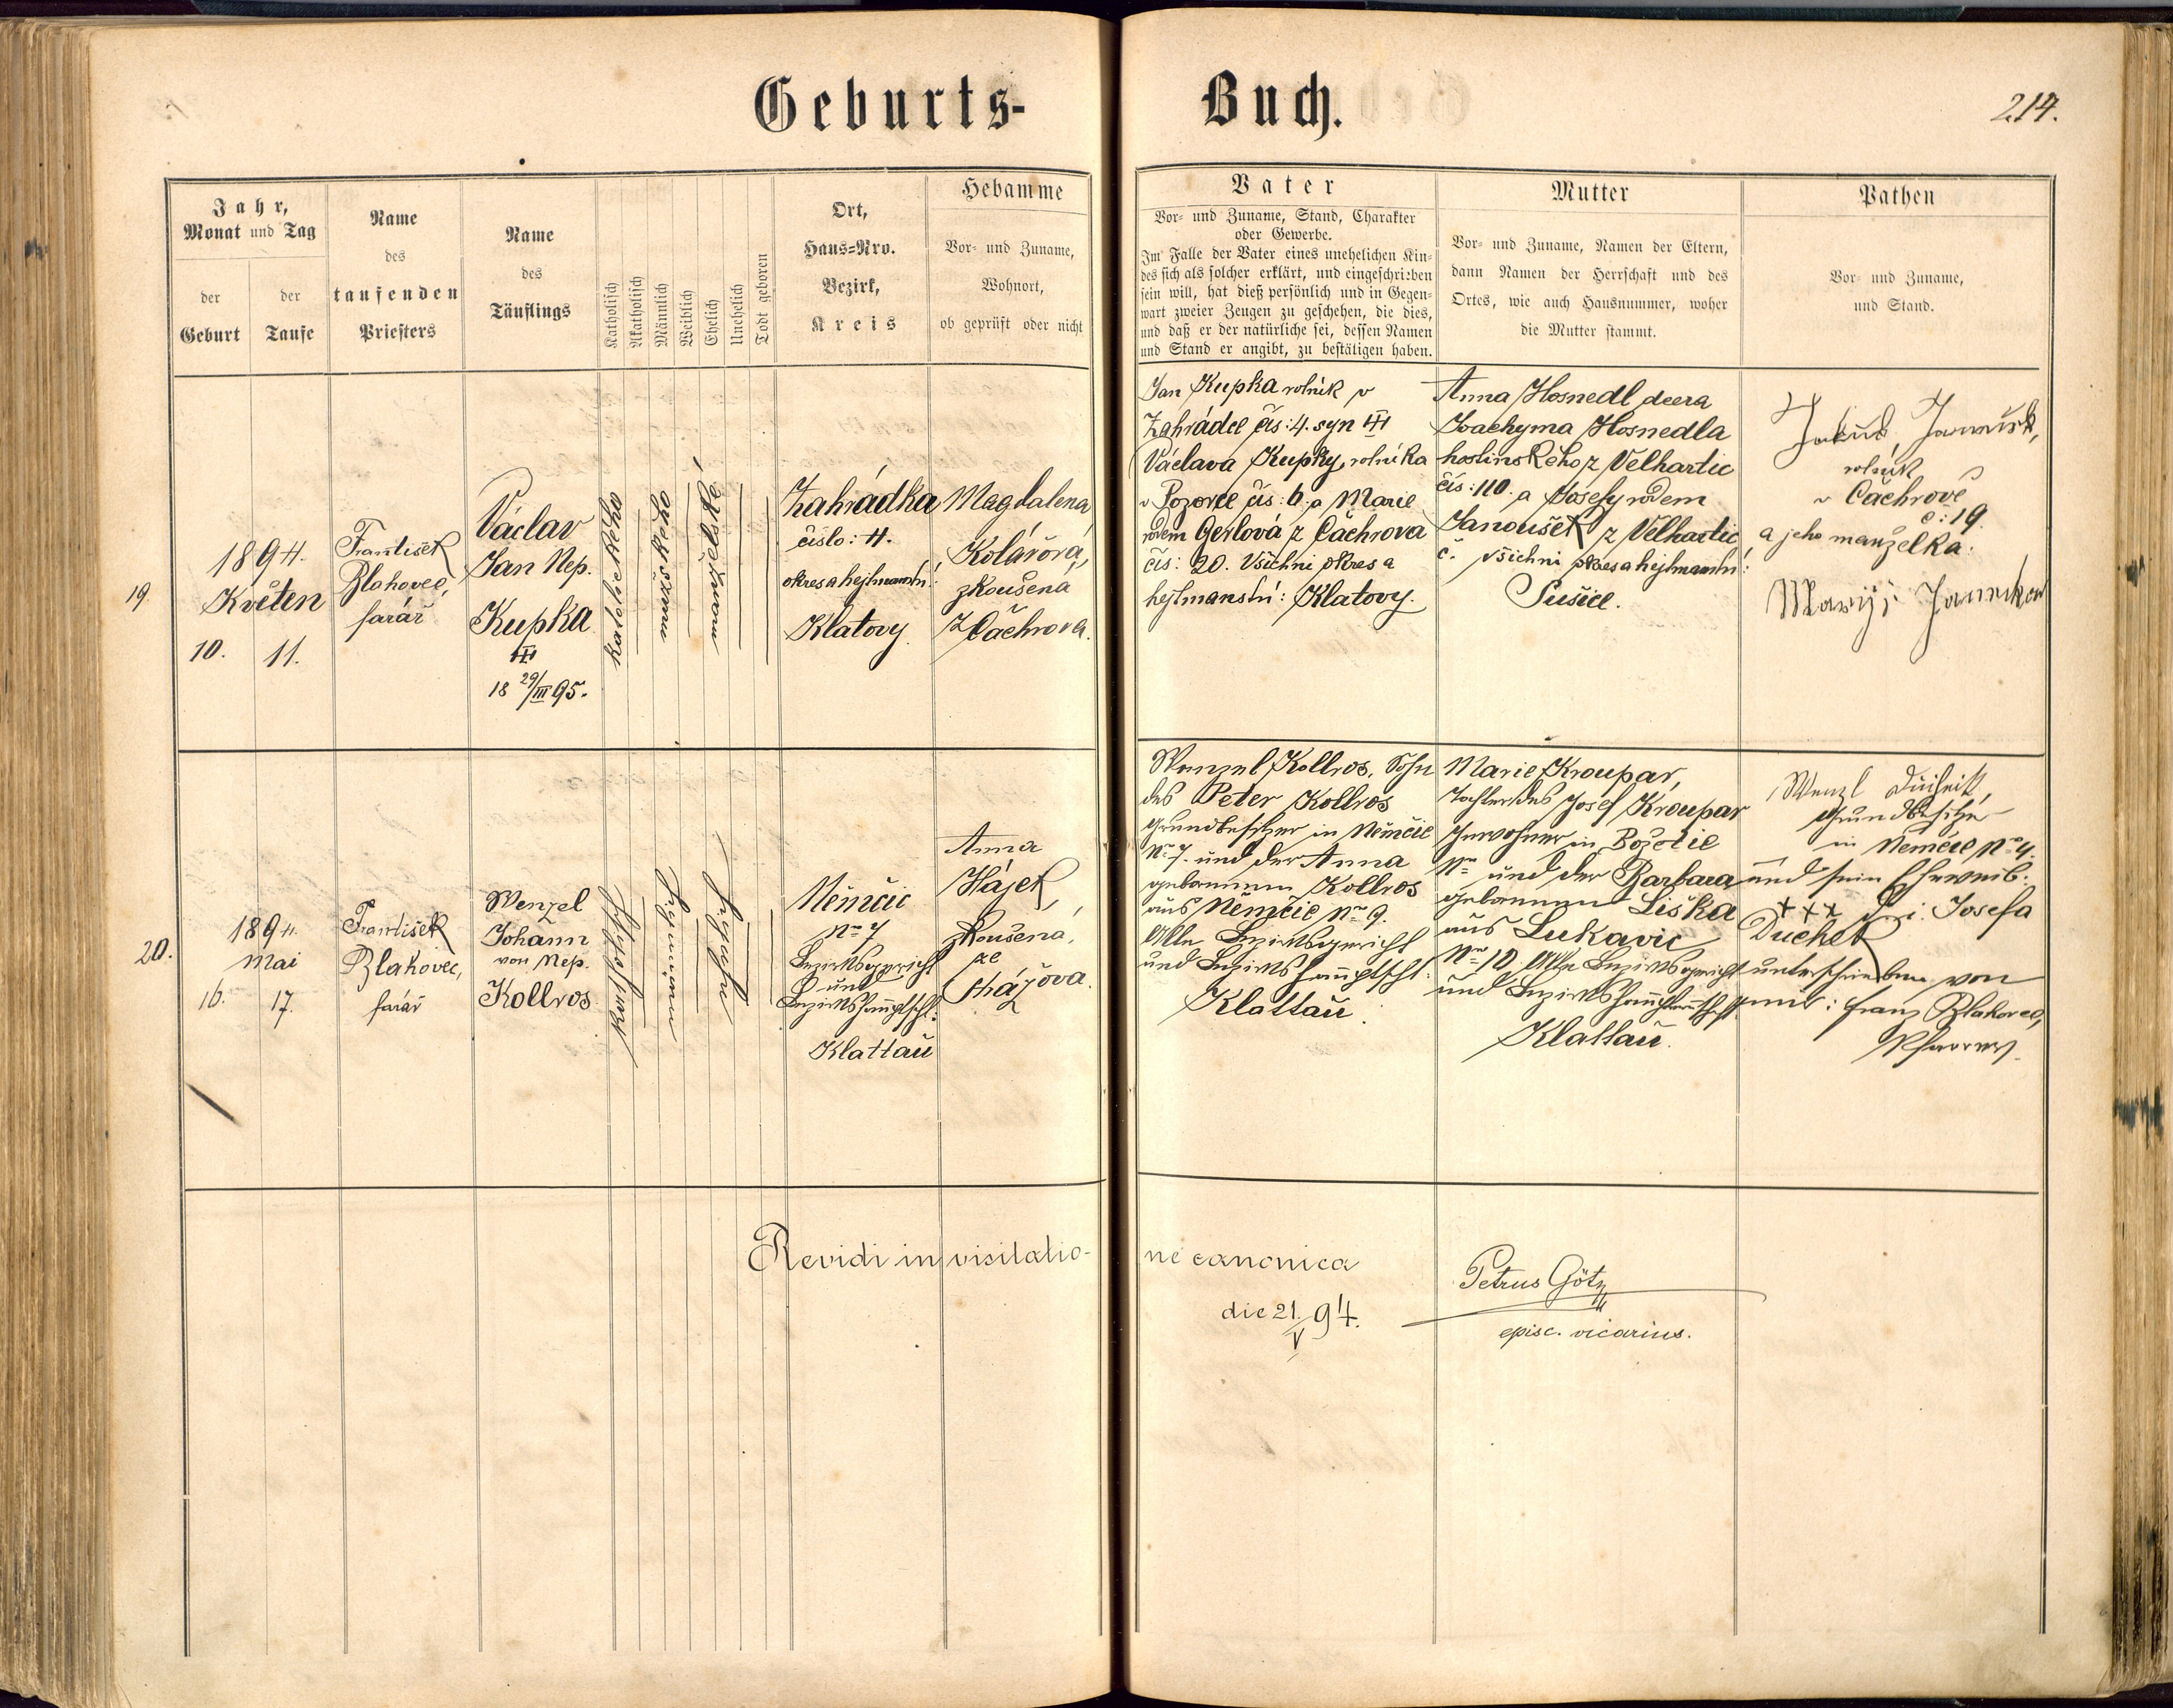 Geburts-
Buch.
214.
Jahr,
Monat und Tag
der
Geburt
der
Taufe
Name
des
taufenden
Priesters
Name
des
Täuflings
Katholisch
Akatholisch
Männlich
Weiblich
Ehelich
Unehelich
Todt geboren
Ort,
Haus=Nro.
Bezirk,
Kreis
Hebamme
Vor- und Zuname,
Wohnort,
ob geprüft oder nicht
Vater
Vor- und Zuname, Stand, Charakter
oder Gewerbe.
Im Falle der Vater eines unehelichen Kin-
des sich als solcher erklärt, und eingeschrieben
sein will, hat dieß persönlich und in Gegen-
wart zweier Zeugen zu geschehen, die dies,
und daß er der natürliche sei, dessen Namen
und Stand er angibt, zu bestätigen haben.
Mutter
Vor- und Zuname, Namen der Eltern,
dann Namen der Herrschaft und des
Ortes, wie auch Hausnummer, woher
die Mutter stammt.
Pathen
Vor- und Zuname,
und Stand.
19.
1894.
Květen
10. 11.
František
Blahovec,
farář
Václav
Jan Nep.
Kupka
III
18 29/III 95.
Zahrádka
číslo: 4.
okres a hejtmanství:
Klatovy
Magdalena
Kolářová,
zkoušena
z Čachrova.
Jan Kupka rolník v
Zahrádce čís: 4. syn III
Václava Kupky, rolníka
čís: 6. a Marie
rodem Gerlová z Čachrova
čís: 20. Všichni okres a
hejtmanství: Klatovy.
Anna Hosnedl dcera
Joachyma Hosnedla
z Velhartic
čís: 110. a Josefy rodem
Janoušek z Velhartic,
č. všichni okres a hejtmanství:
Sušice.
Jakub,
rolník
v Čachrově
č: 19.
a jeho manželka:
20.
1894.
Mai
16. 17.
František
Blahovec,
farář
Wenzel
Johann
von Nep.
Kollros
Němčic
Nro 7
Bezirksgericht
und
Bezirkshauptschft:
Klattau
Anna
Hájek,
zkoušená,
ze
Wenzel Kollros, Sohn
des Peter Kollros
Grundbesitzer in Němčic
Nro 7. und der Anna
geborenen Kollros
aus Němčic Nro 9.
Alle Bezirksgericht
und Bezirkshauptschft:
Klattau.
Marie Kroupar,
Tochter des Josef Kroupar
Inwohner in
Nro und der Barbara
geborenen Liška
aus Lukavic
Nro 10. Alle Bezirksgericht
und Bezirkshauptmannschaft
Klattau.
Wenzl
Grundbesitzer
in Němčic Nro 4.
und sein Eheweib:
+++ Josefa
Duchek
unterschrieben von
mir: Franz Blahovec,
Pfarrer.
Revidi in visitatio-
ne canonica
die 21/V 94.
Petrus Götz
episc. vicarius.